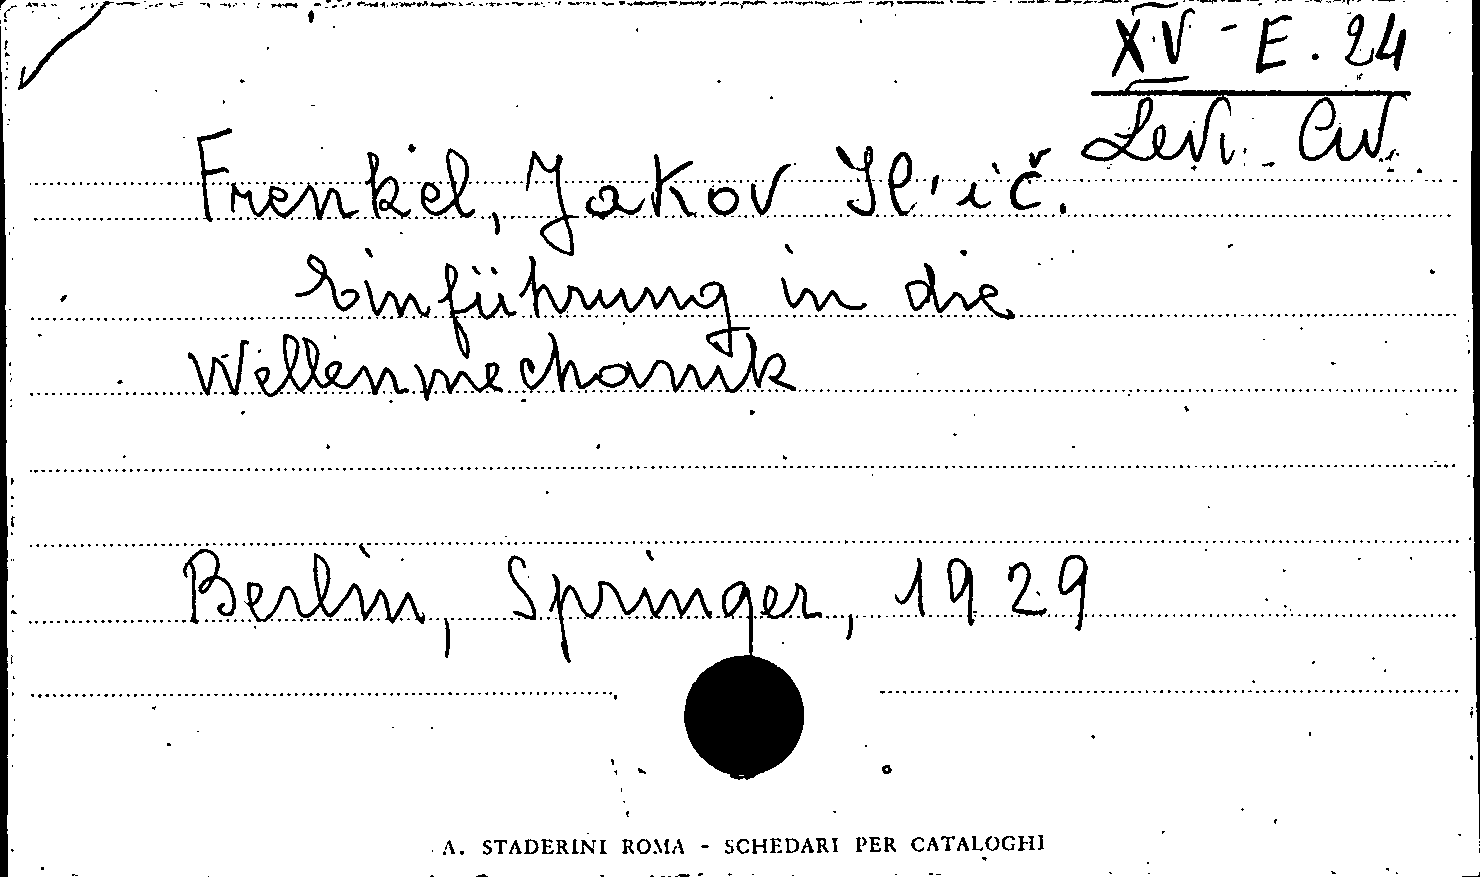 XV - E. 24
Levi. Civ.
Frenkel, Jakov Il'ič.
Einführung in die
Wellenmechanik
Berlin, Springer, 1929
A. STADERINI ROMA - SCHEDARI PER CATALOGHI